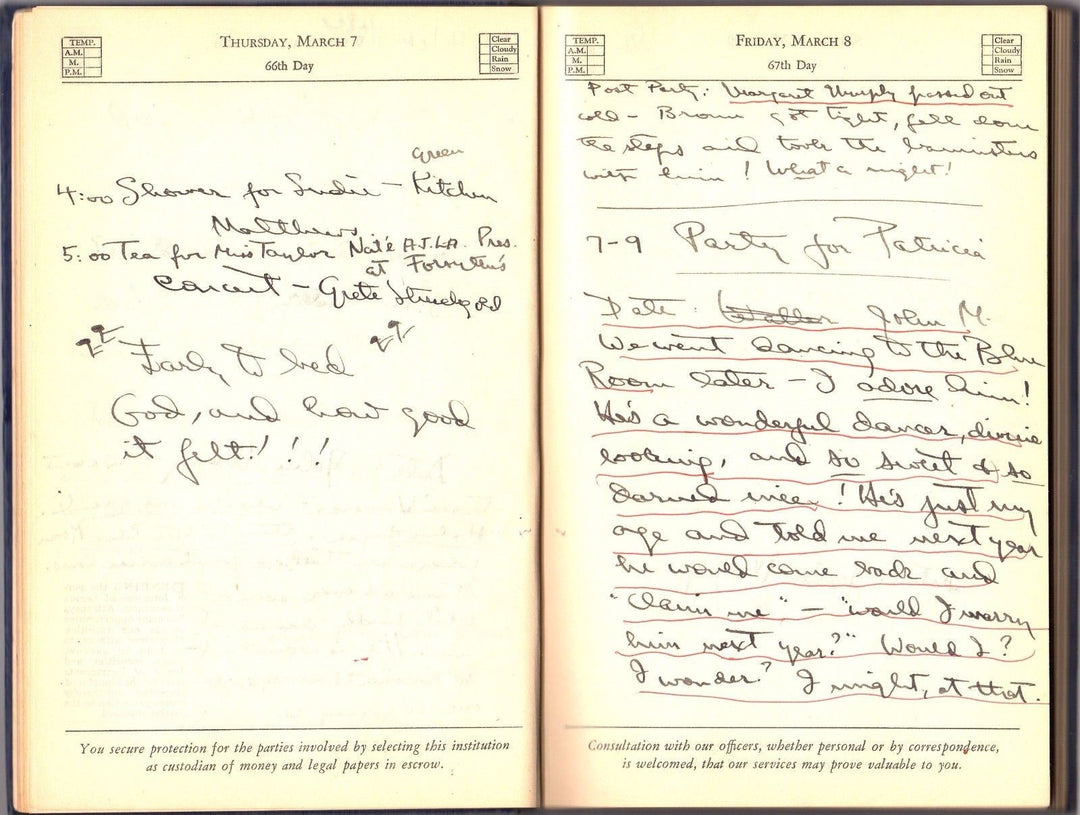 TEMP.
A.M.
M.
P.M.
THURSDAY, MARCH 7
66th Day
Clear
Cloudy
Rain
Snow
green
4:00 Shower for Sudie – Kitchen
Matthews
5:00 Tea for Miss Taylor Nat'l A.J.L.A. Pres.
at Forsythe's
Concert – Grete
Early to bed
God, and how good
it felt! ! !
You secure protection for the parties involved by selecting this institution
as custodian of money and legal papers in escrow.
TEMP.
A.M.
M.
P.M.
FRIDAY, MARCH 8
67th Day
Clear
Cloudy
Rain
Snow
Post Party: Margaret Murphy passed out
cold – Brown got tight, fell down
the steps and took the bannisters
with him! What a night!
7-9 Party for Patricia
Date: John M.
We went dancing to the Blue
Room later – I adore him!
He's a wonderful dancer, divine
looking, and so sweet & so
darned nice! He's just my
age and told me next year
he would come back and
"Claim me" – "would I marry
him next year?" Would I?
I wonder? I might, at that.
Consultation with our officers, whether personal or by correspondence,
is welcomed, that our services may prove valuable to you.